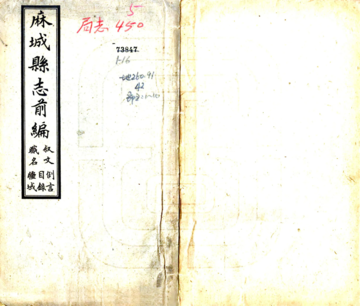 麻城縣志前編
敘文 例言
職名 目錄
疆域
5
局志 450
73847.
1-16
42